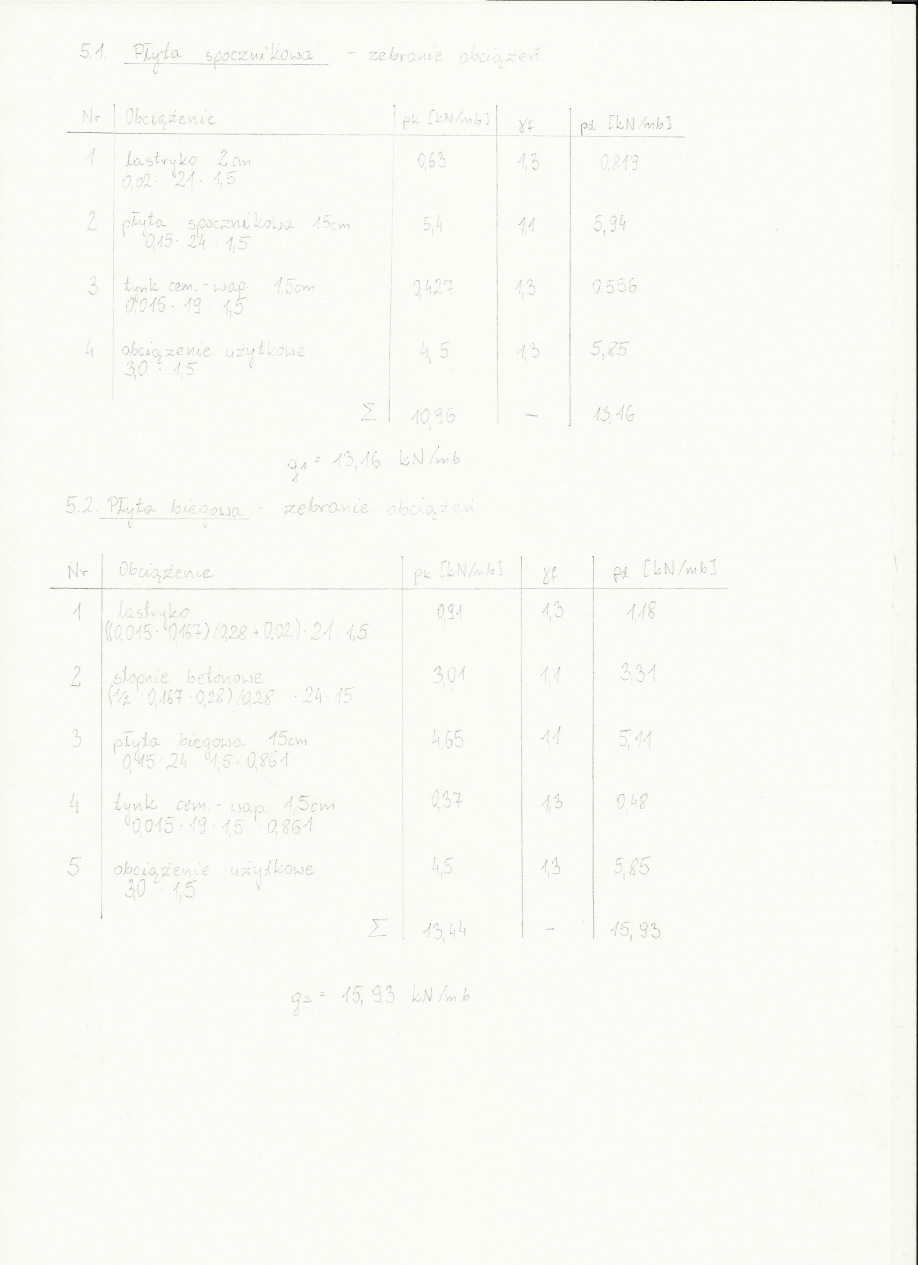 5.1. Płyta spocznikowa - zebranie obciążeń
Nr Obciążenie pk [kN/mb] γf pd [kN/mb]
1 lastryko 2cm 0,63 1,3 0,819
0,02 · 21 · 1,5
2 płyta spocznikowa 15cm 5,4 1,1 5,94
0,15 · 24 · 1,5
3 tynk cem.-wap. 1,5cm 0,427 1,3 0,556
0,015 · 19 · 1,5
4 obciążenie użytkowe 4,5 1,3 5,85
3,0 · 1,5
Σ 10,96 - 13,16
g1 = 13,16 kN/mb
5.2. Płyta biegowa - zebranie obciążeń
Nr Obciążenie pk [kN/mb] γf pd [kN/mb]
1 lastryko 0,91 1,3 1,18
((0,015 · 0,167)/0,28 + 0,02) · 21 · 1,5
2 stopnie betonowe 3,01 1,1 3,31
(1/2 · 0,167 · 0,28)/0,28 · 24 · 1,5
3 płyta biegowa 15cm 4,65 1,1 5,11
0,15 · 24 · 1,5 · 0,861
4 tynk cem.-wap. 1,5cm 0,37 1,3 0,48
0,015 · 19 · 1,5 · 0,861
5 obciążenie użytkowe 4,5 1,3 5,85
3,0 · 1,5
Σ 13,44 - 15,93
g2 = 15,93 kN/mb